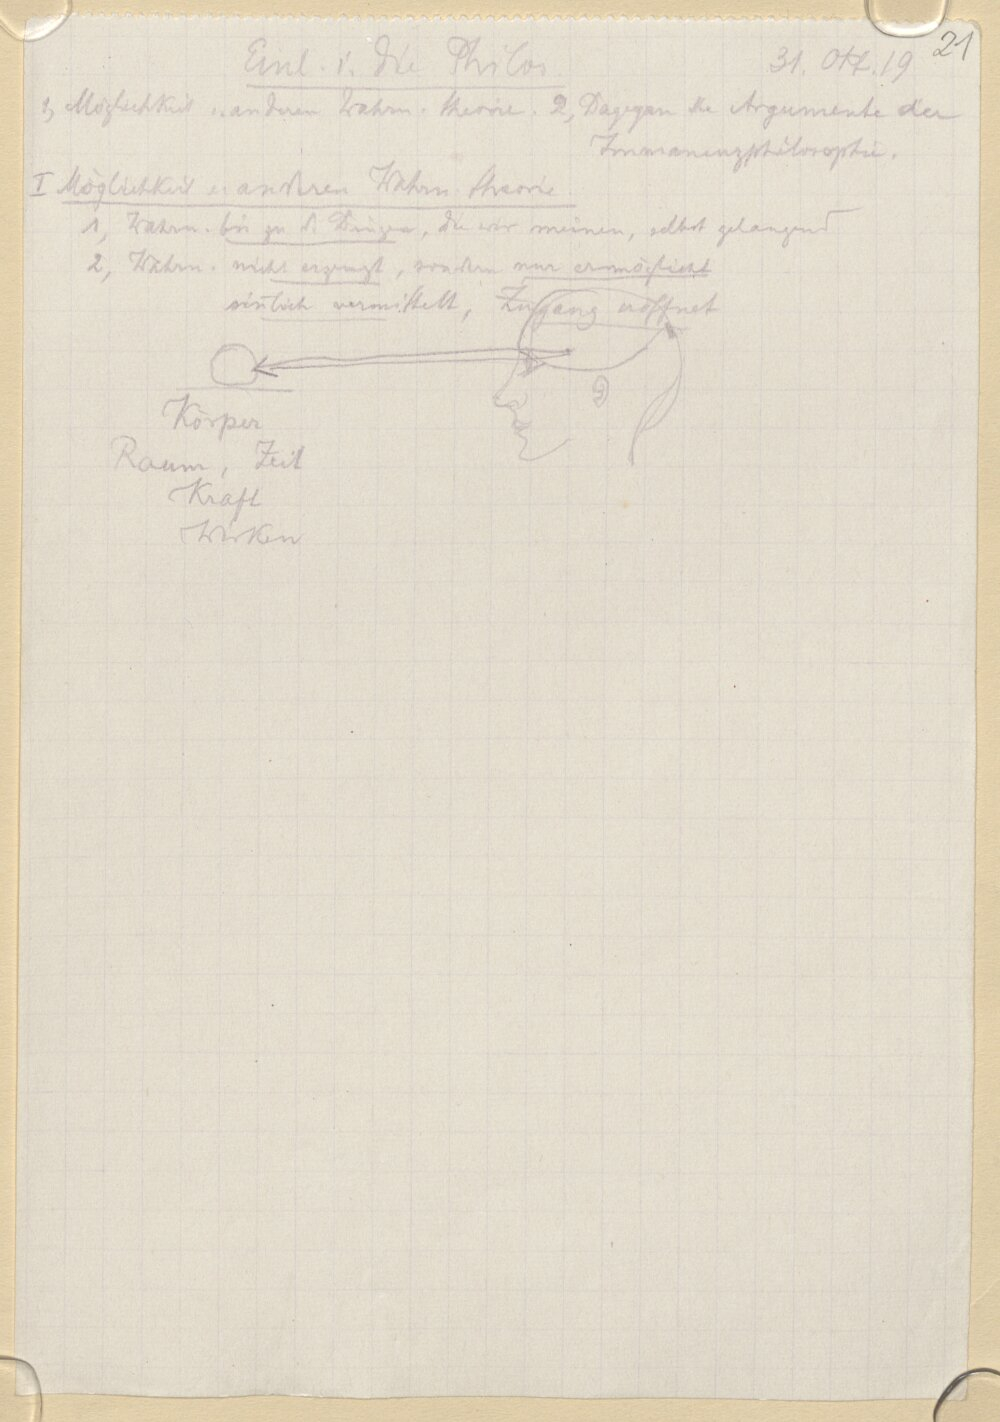 21
Einl. i. die Philos. 31. Okt. 19
1, Möglichkeit e. anderen Wahrn. theorie. 2, Dagegen die Argumente der
Immanenzphilosophie.
I Möglichkeit e. anderen Wahrn. theorie
1, Wahrn. bis zu d. Dingen, die wir meinen, selbst gelangend
2, Wahrn. nicht erzeugt, sondern nur ermöglicht
sinlich vermittelt, Zugang eröffnet
Körper
Raum, Zeit
Kraft
Wirken